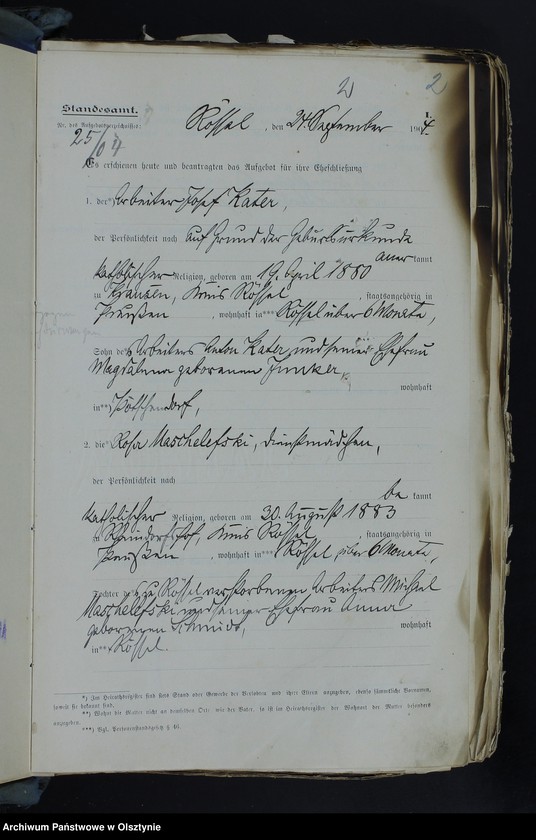 2 2
Standesamt.
Nr. des Aufgebotsverzeichnisses:
25/04
Rössel, den 24. September 1904
Es erschienen heute und beantragten das Aufgebot für ihre Eheschließung
1. der*) Arbeiter Josef Kater,
der Persönlichkeit nach auf Grund der Geburtsurkunde
anerkannt
katholischer Religion, geboren am 19. April 1880
zu Krausen, Kreis Rössel, staatsangehörig in
Preußen, wohnhaft in***) Rössel über 6 Monate,
Sohn des Arbeiters Anton Kater und seiner Ehefrau
Magdalena geborenen Junker,
wohnhaft
in**)
2. die*) Rosa Maschelefski, Dienstmädchen,
der Persönlichkeit nach
bekannt
katholischer Religion, geboren am 30. August 1883
zu Kreis Rössel staatsangehörig in
Preußen, wohnhaft in***) Rössel über 6 Monate,
Tochter des zu Rössel verstorbenen Arbeiters Michael
Maschelefski und seiner Ehefrau Anna
geborenen Schmidt,
wohnhaft
in**) Rössel.
*) Im Heiratsregister sind stets Stand oder Gewerbe der Verlobten und ihrer Eltern anzugeben, ebenso sämmtliche Vornamen,
soweit sie bekannt sind.
**) Wohnt die Mutter nicht an demselben Orte wie der Vater, so ist im Heiratsregister der Wohnort der Mutter besonders
anzugeben.
***) Vgl. Personenstandsgesetz §
Archiwum Państwowe w Olsztynie